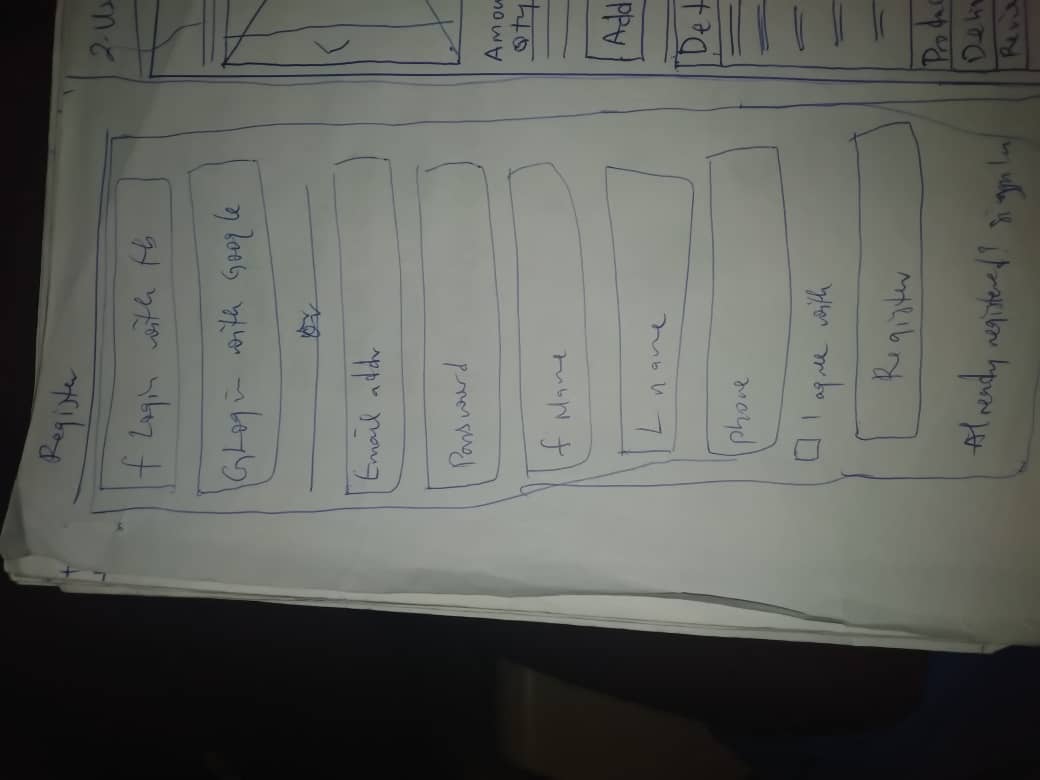 Register
f Login with fb
G Login with Google
or
Email addr
Password
f Name
L name
phone
I agree with
Register
Already registered? sign In
2-Us
Amou
Qty
Add
Det
Produ
Deli
Revie